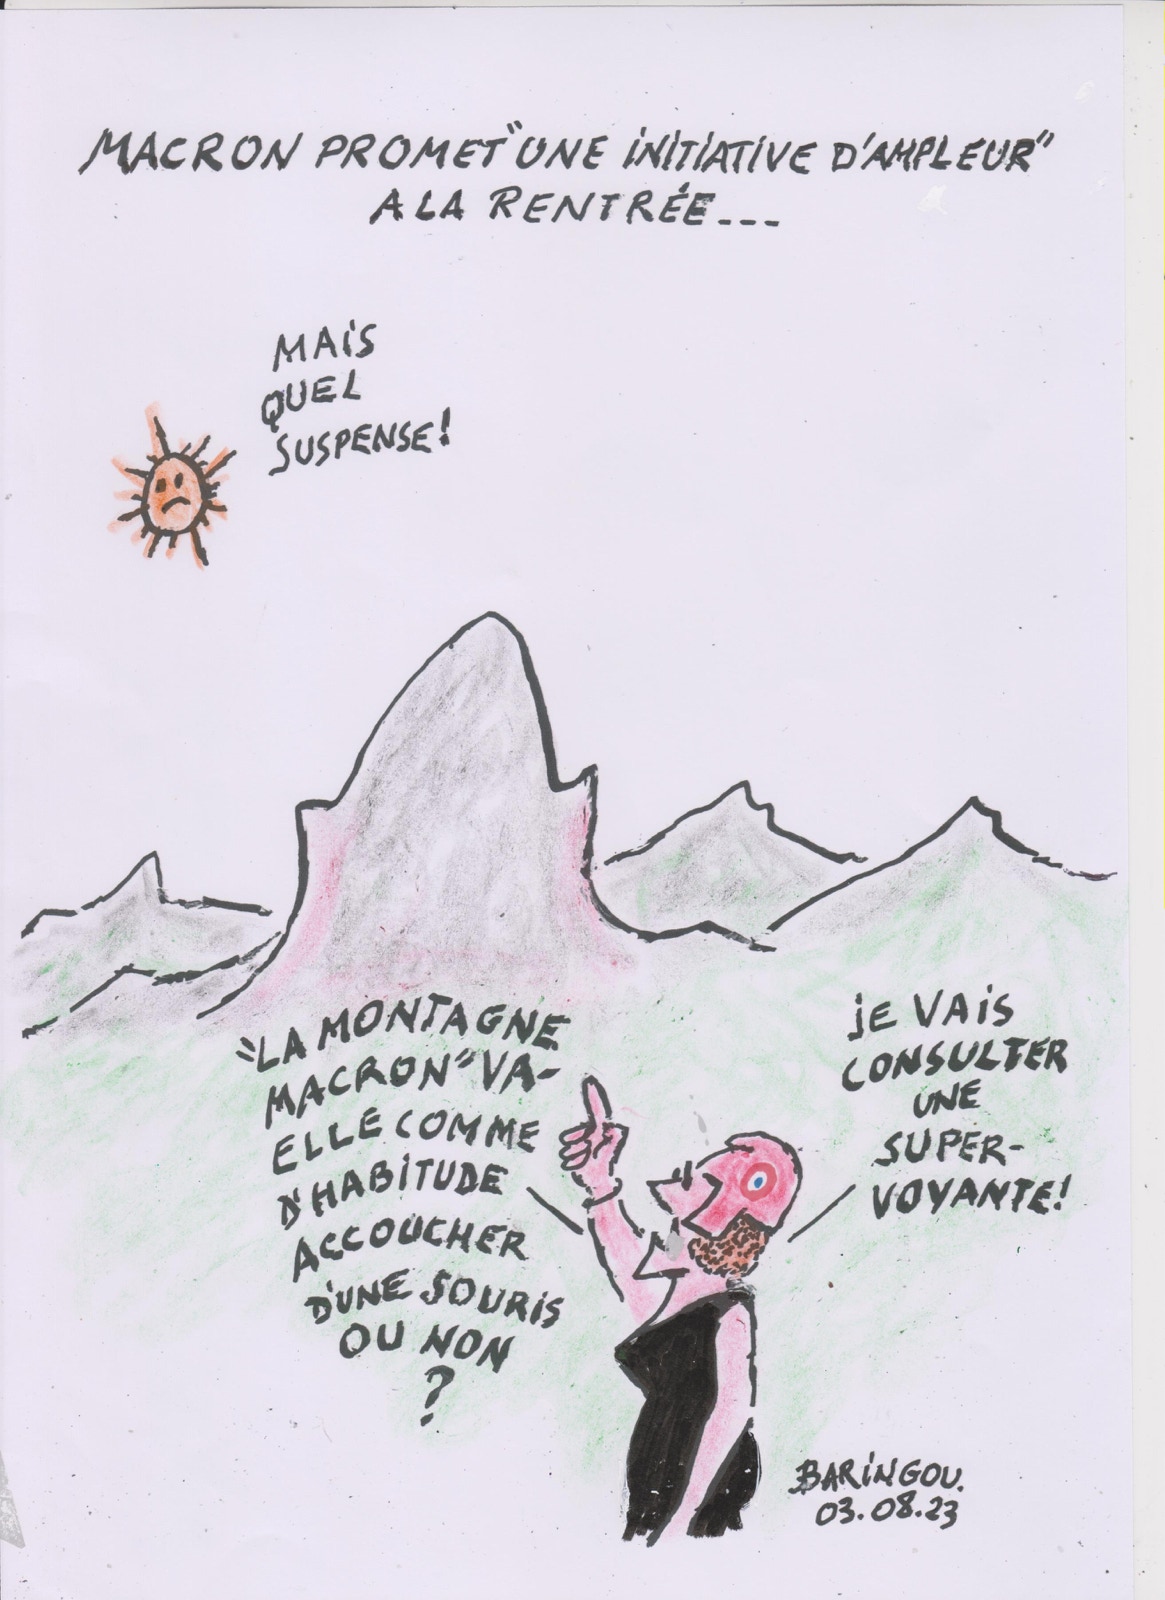 MACRON PROMET "UNE INITIATIVE D'AMPLEUR"
A LA RENTRÉE...
MAIS
QUEL
SUSPENSE!
"LA MONTAGNE
MACRON" VA-
ELLE COMME
D'HABITUDE
ACCOUCHER
D'UNE SOURIS
OU NON
?
JE VAIS
CONSULTER
UNE
SUPER-
VOYANTE!
BARINGOU.
03.08.23